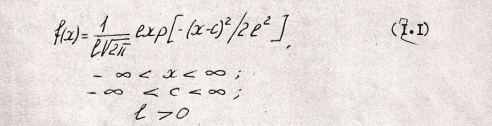 f(x) = 1/(l√2π) exp[-(x-c)²/2l²], (I.I)
- ∞ < x < ∞ ;
- ∞ < c < ∞ ;
l > 0